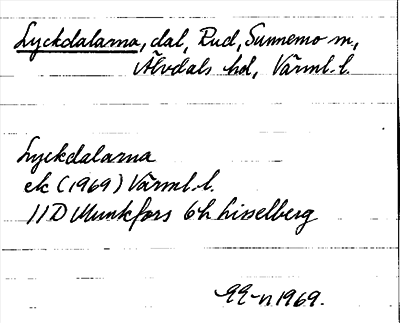 Lyckdalarna, dal, Rud, Sunnemo sn,
Älvdals hd, Värml. l.
Lyckdalarna
ek (1969) Värml. l.
11D Munkfors 6h Lisselberg
1969.